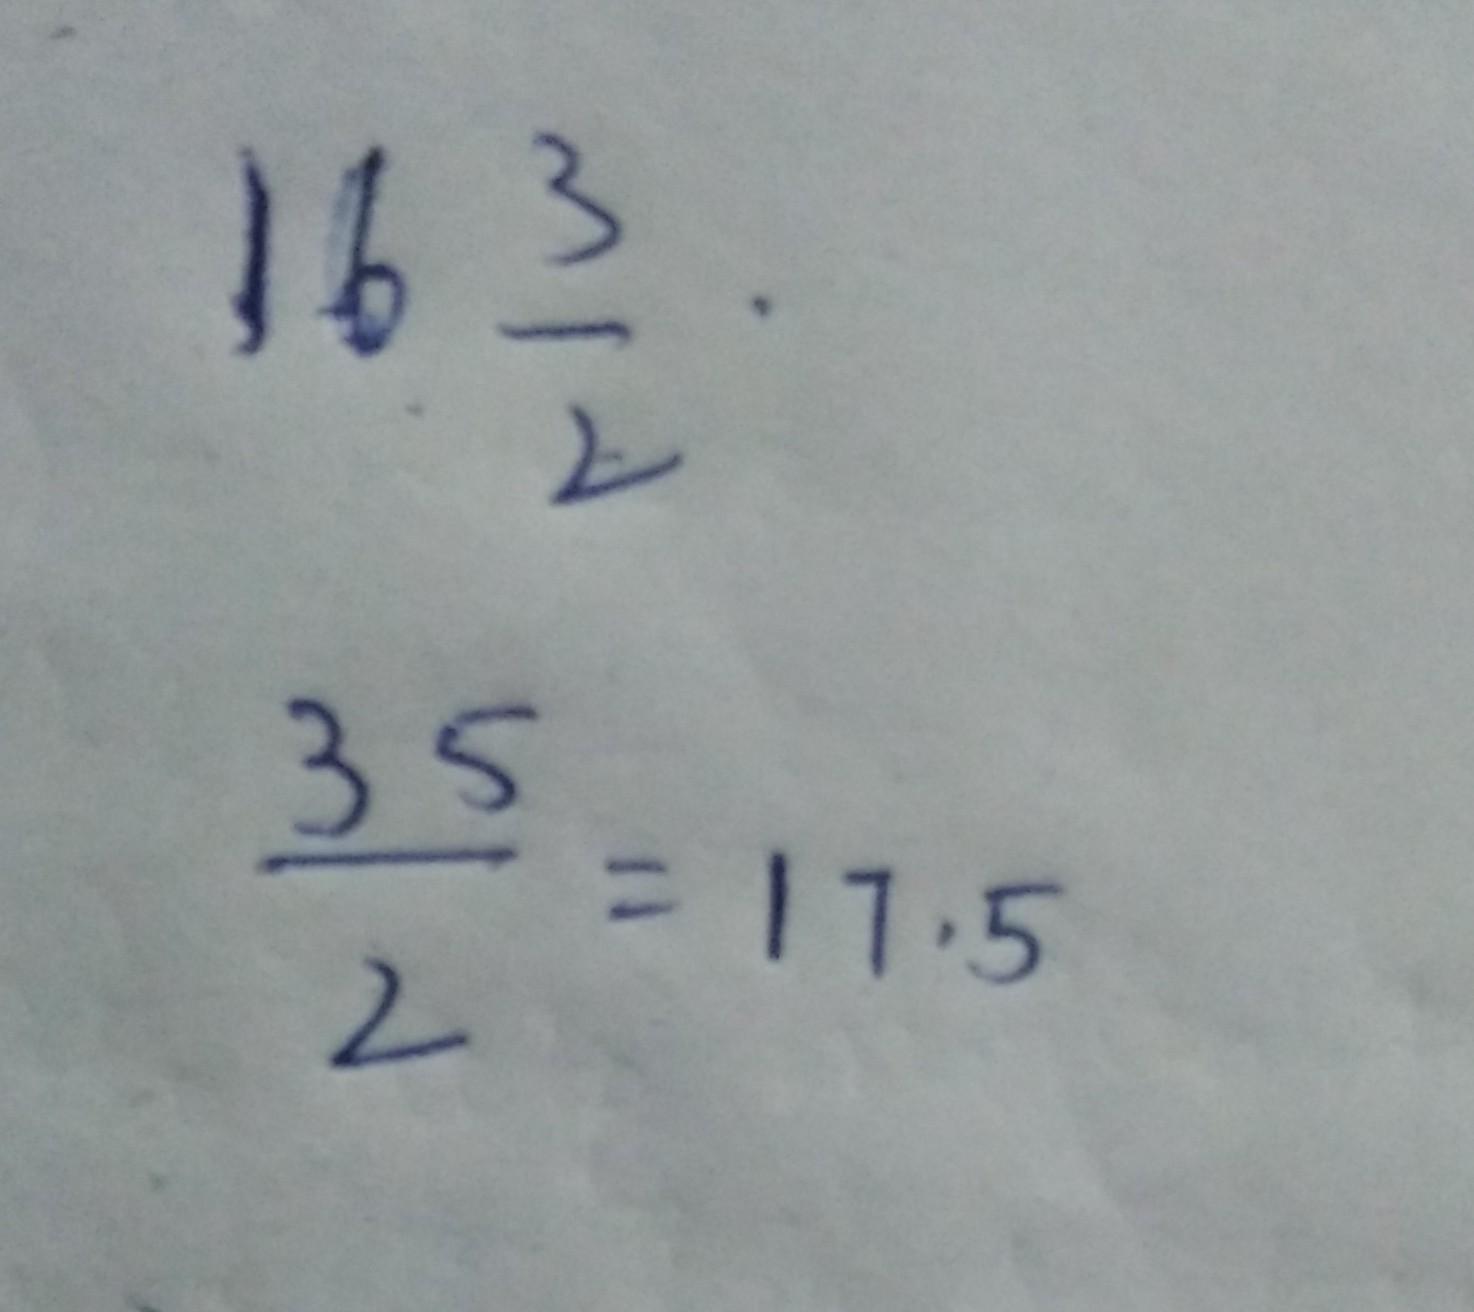 16 3/2 .
35/2 = 17.5